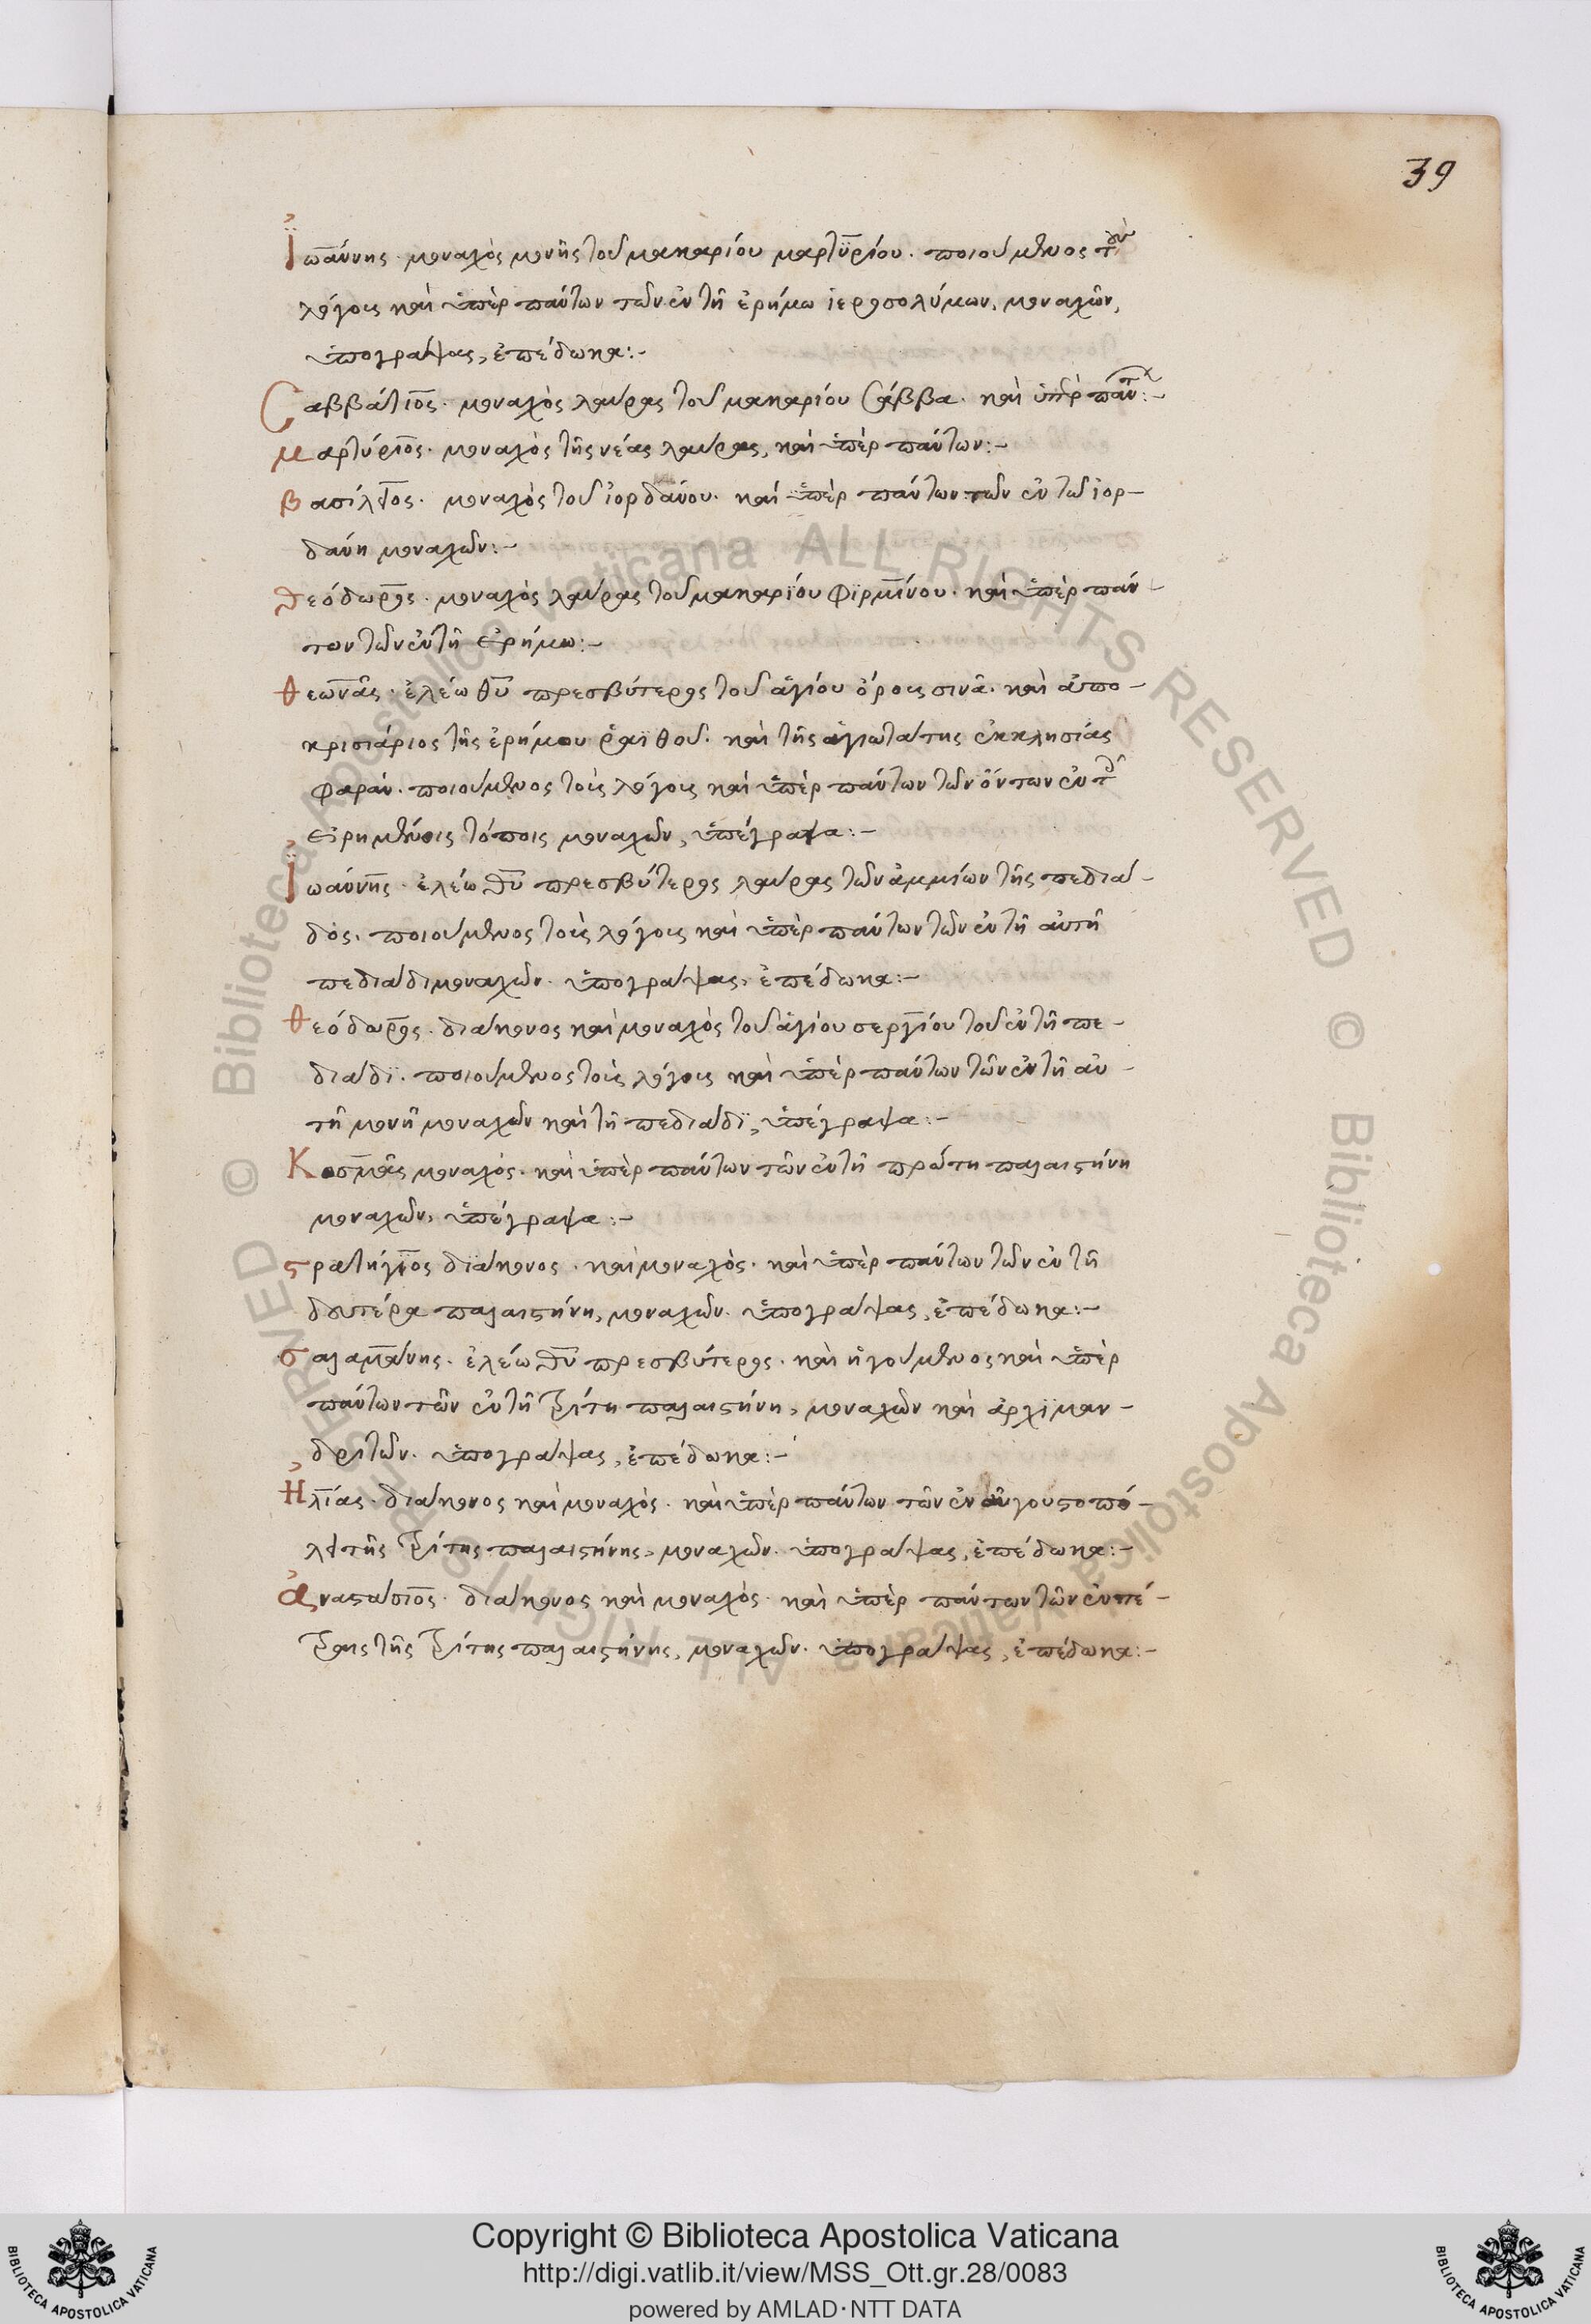 39
Ἰωάννης· μοναχὸς μονῆς τοῦ μακαρίου μαρτυρίου. ποιούμενος τοὺς
λόγους καὶ ὑπὲρ πάντων τῶν ἐν τῇ ἐρήμω ἱεροσολύμων, μοναχῶν,
ὑπογράψας, ἐπέδωκα:-
Cαββάτιος· μοναχὸς λαύρας τοῦ μακαρίου Cάββα. καὶ ὑπὲρ πάντων:-
μαρτύριος· μοναχὸς τῆς νέας λαύρας, καὶ ὑπὲρ πάντων:-
βασίλειος. μοναχὸς τοῦ ἰορδάνου. καὶ ὑπὲρ πάντων τῶν ἐν τῶ ἰορ-
δάνη μοναχῶν:-
θεόδωρος. μοναχὸς λαύρας τοῦ μακαρίου Φιρμίνου. καὶ ὑπὲρ πάν-
των τῶν ἐν τῇ ἐρήμω:-
θεωνᾶς. ἐλέω θυ πρεσβύτερος τοῦ ἁγίου ὄρους σινᾶ. καὶ ἀπο-
κρισιάριος τῆς ἐρήμου ῥαϊθοῦ. καὶ τῆς ἁγιωτάτης ἐκκλησίας
Φαράν. ποιούμενος τοὺς λόγους καὶ ὑπὲρ πάντων τῶν ὄντων ἐν τοῖς
εἰρημένοις τόποις μοναχῶν, ὑπέγραψα:-
Ἰωάννης. ἐλέω θυ πρεσβύτερος λαύρας τῶν ἀμμίων τῆς πεδιά-
δος. ποιούμενος τοὺς λόγους καὶ ὑπὲρ πάντων τῶν ἐν τῇ αὐτῇ
πεδιάδι μοναχῶν. ὑπογράψας, ἐπέδωκα:-
θεόδωρος. διάκονος καὶ μοναχὸς τοῦ ἁγίου σεργίου τοῦ ἐν τῇ πε-
διάδϊ. ποιούμενος τοὺς λόγους καὶ ὑπὲρ πάντων τῶν ἐν τῇ αὐ-
τῇ μονῇ μοναχῶν καὶ τῇ πεδιάδϊ, ὑπέγραψα:-
Κοσμᾶς μοναχὸς. καὶ ὑπὲρ πάντων τῶν ἐν τῇ πρώτη παλαιστίνη
μοναχῶν, ὑπέγραψα:-
στρατήγιος διάκονος. καὶ μοναχὸς. καὶ ὑπὲρ πάντων τῶν ἐν τῇ
δευτέρα παλαιστήνη, μοναχῶν. ὑπογράψας, ἐπέδωκα:-
σαλαμάνης. ἐλέω θυ πρεσβύτερος. καὶ ἡγούμενος καὶ ὑπὲρ
πάντων τῶν ἐν τῇ τρίτη παλαιστήνη, μοναχῶν καὶ ἀρχϊμαν-
δριτῶν. ὑπογράψας, ἐπέδωκα:-
Ἠλίας. διάκονος καὶ μοναχὸς. καὶ ὑπὲρ πάντων τῶν ἐν αὐγουστοπό-
λει τῆς τρίτης παλαιστήνης, μοναχῶν. ὑπογράψας, ἐπέδωκα:-
ἀναστάσιος. διάκονος καὶ μοναχὸς. καὶ ὑπὲρ πάντων τῶν ἐν πέ-
τραις τῆς τρίτης παλαιστήνης, μοναχῶν. ὑπογράψας, ἐπέδωκα:-
© Biblioteca Apostolica Vaticana ALL RIGHTS RESERVED © Biblioteca Apostolica Vaticana ALL RIGHTS RESERVED
Copyright © Biblioteca Apostolica Vaticana
http://digi.vatlib.it/view/MSS_Ott.gr.28/0083
powered by AMLAD·NTT DATA
BIBLIOTECA APOSTOLICA VATICANA
BIBLIOTECA APOSTOLICA VATICANA